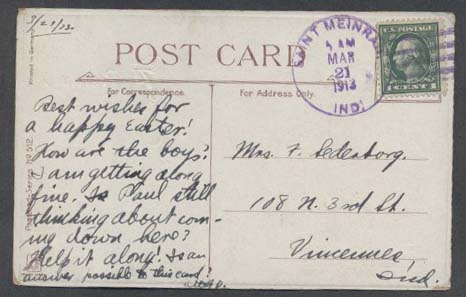 3/21/13.
POST CARD
For Correspondence.
For Address Only.
SAINT MEINRAD
AM
MAR
21
1913
IND.
U.S. POSTAGE
1 CENT 1
Printed in Germany
Series No 512.
Best wishes for
a happy Easter!
How are the boys?
I am getting along
fine. Is Paul still
thinking about com-
ing down here?
Help it along! Is an
answer possible to this card?
Mrs. F. Ledenborg.
108 N. 3rd St.
Vincennes,
Ind.